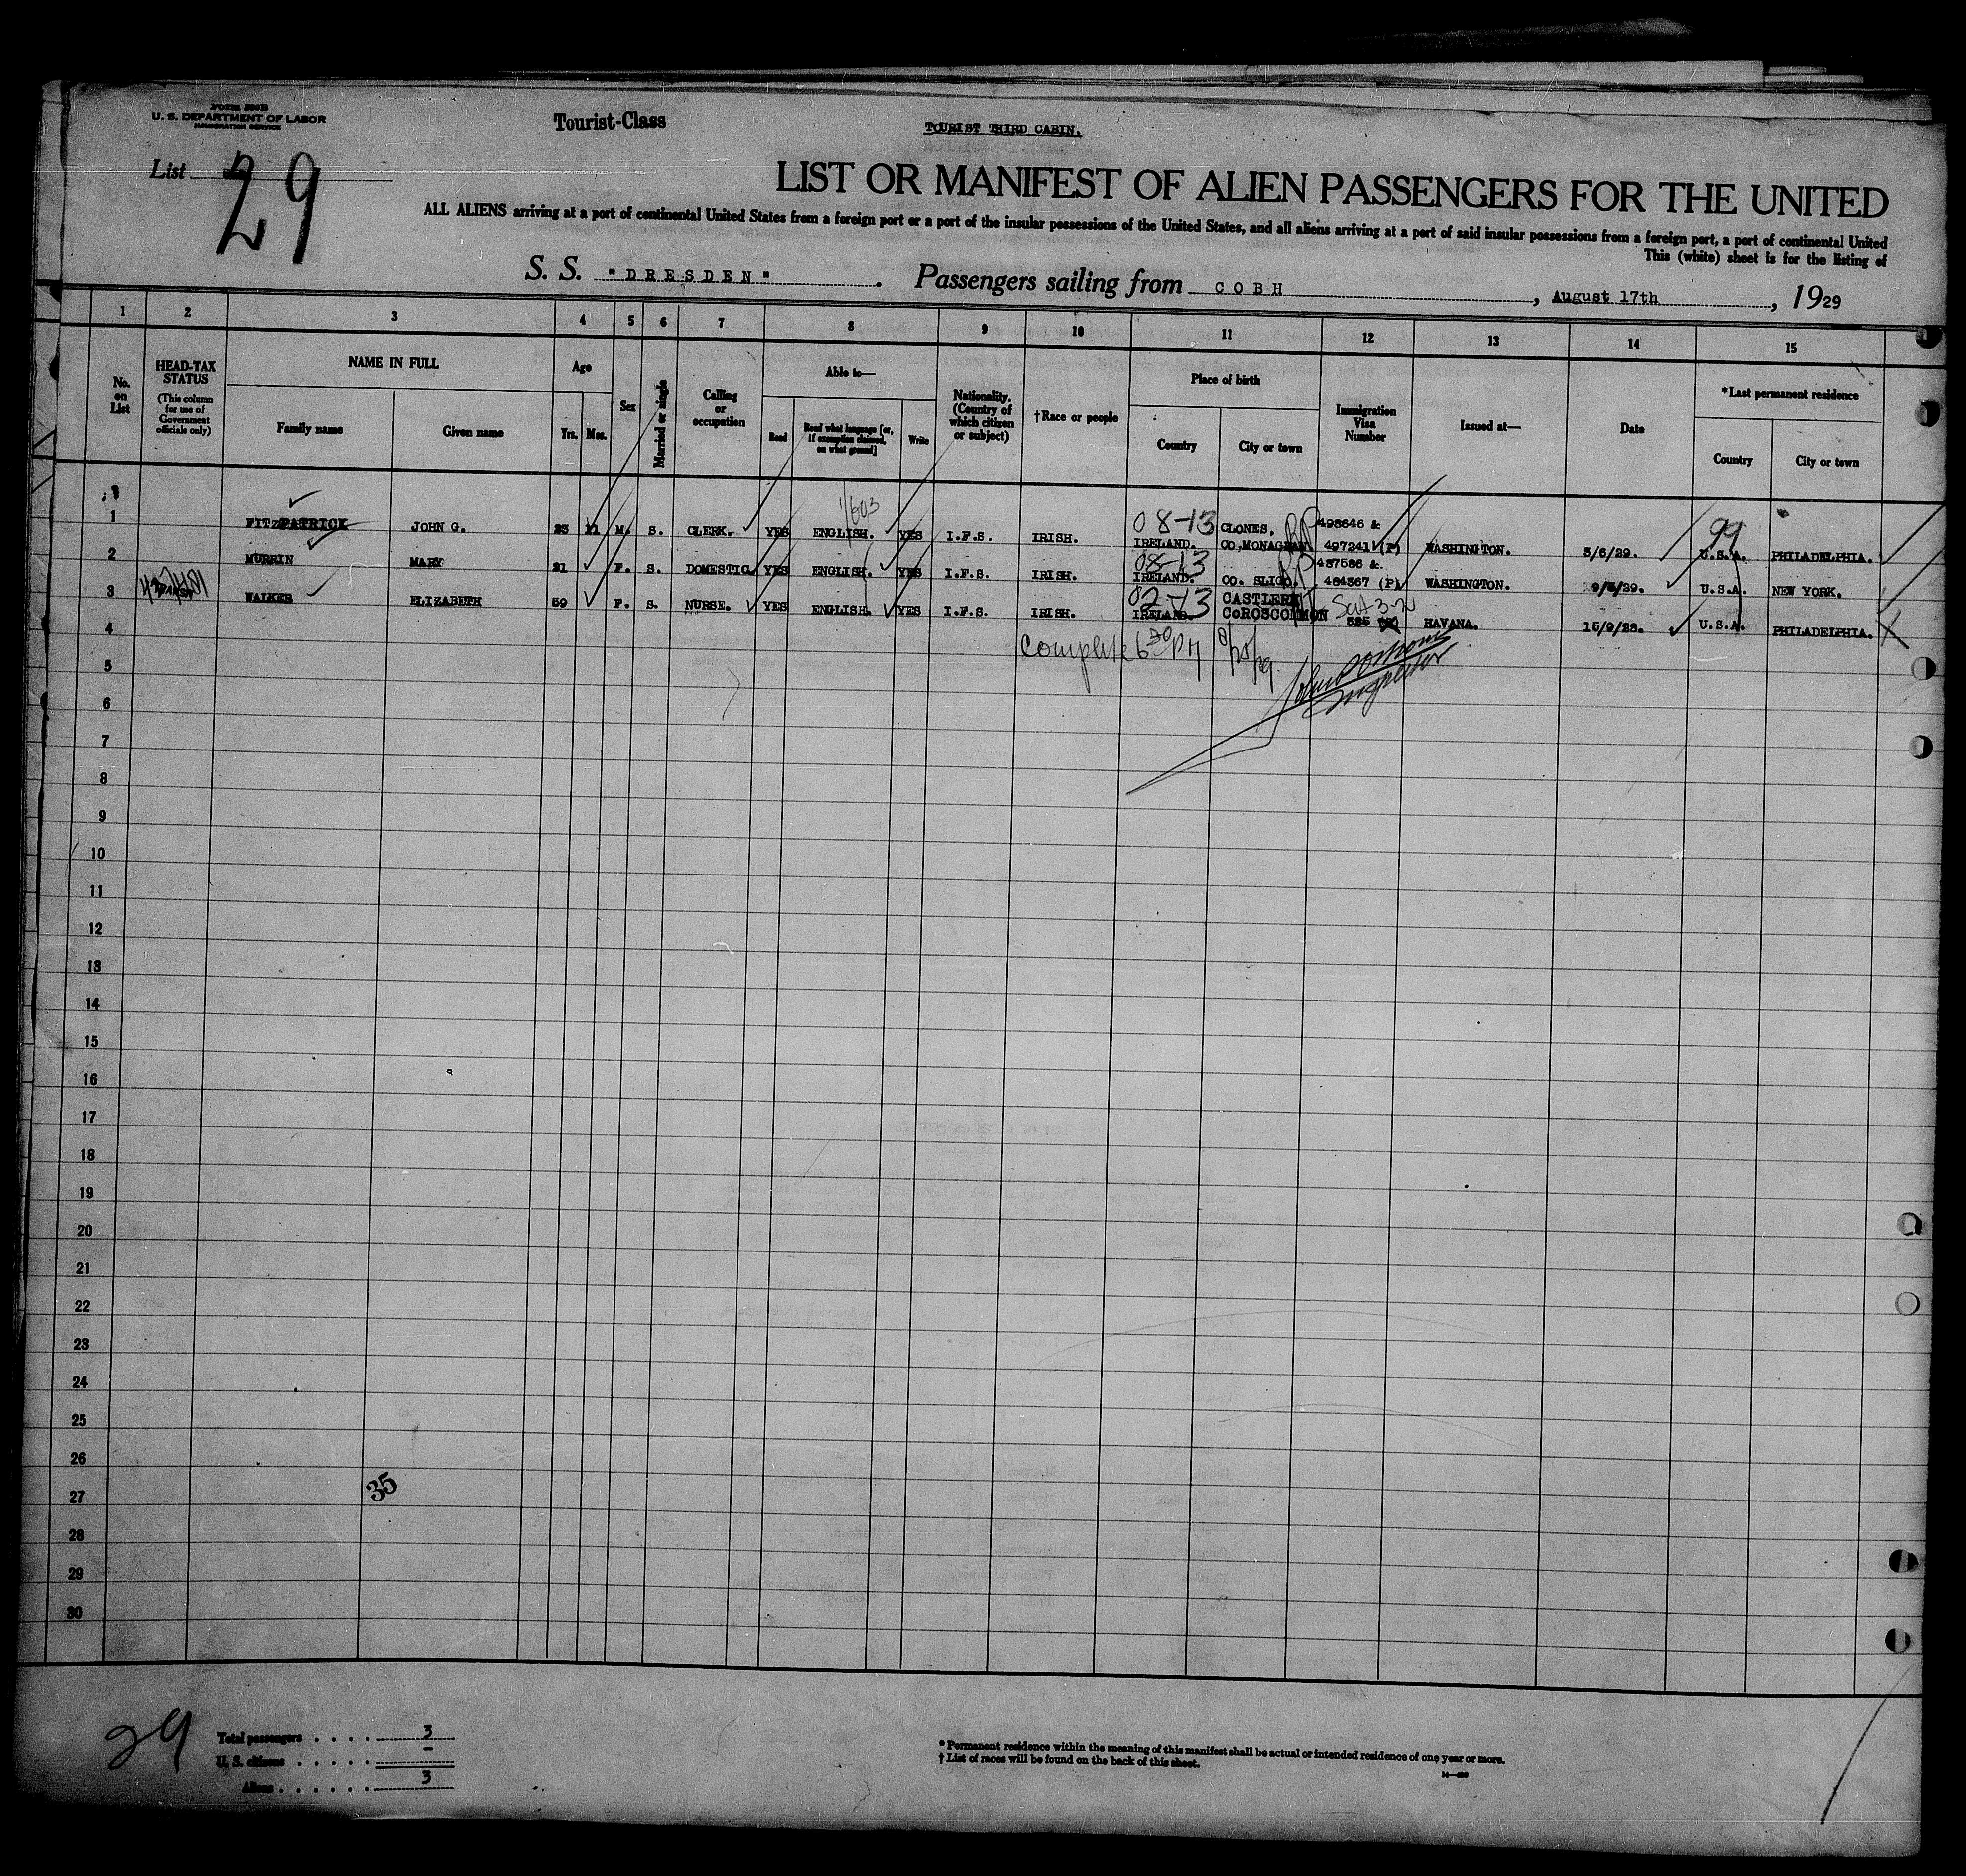 Form 500B
U. S. DEPARTMENT OF LABOR
IMMIGRATION SERVICE
Tourist-Class
TOURIST THIRD CABIN.
List 29
LIST OR MANIFEST OF ALIEN PASSENGERS FOR THE UNITED
ALL ALIENS arriving at a port of continental United States from a foreign port or a port of the insular possessions of the United States, and all aliens arriving at a port of said insular possessions from a foreign port, a port of continental United
This (white) sheet is for the listing of
S. S. "DRESDEN" . Passengers sailing from COBH , August 17th , 1929
1 2 3 4 5 6 7 8 9 10 11 12 13 14 15
No. on List
HEAD-TAX STATUS
(This column for use of Government officials only)
NAME IN FULL
Family name
Given name
Age
Yrs. Mos.
Sex
Married or single
Calling or occupation
Able to—
Read
Read what language [or, if exemption claimed, on what ground]
Write
Nationality. (Country of which citizen or subject)
†Race or people
Place of birth
Country
City or town
Immigration Visa Number
Issued at—
Date
*Last permanent residence
Country
City or town
1 FITZPATRICK JOHN G. 23 11 M. S. CLERK. YES ENGLISH. YES I.F.S. IRISH. 08-13 IRELAND. CLONES, CO.MONAGHAN RP 498646 & 497241 (P) WASHINGTON. 5/6/29. 99 U.S.A. PHILADELPHIA.
2 MURRIN MARY 21 F. S. DOMESTIC YES ENGLISH. YES I.F.S. IRISH. 08-13 IRELAND. CO. SLIGO. RP 487586 & 484367 (P) WASHINGTON. U.S.A. NEW YORK.
3 WALKER ELIZABETH 59 F. S. NURSE. YES ENGLISH. YES I.F.S. IRISH. 02-13 IRELAND. CASTLEREA CoROSCOMMON 525 HAVANA. 15/9/28. U.S.A. PHILADELPHIA.
4
Complete 6 30 PM
Inspector
5
6
7
8
9
10
11
12
13
14
15
16
17
18
19
20
21
22
23
24
25
26
27
28
29
30
35
29
Total passengers . . . . 3
U. S. citizens . . . . . –
Aliens . . . . . . 3
* Permanent residence within the meaning of this manifest shall be actual or intended residence of one year or more.
† List of races will be found on the back of this sheet.